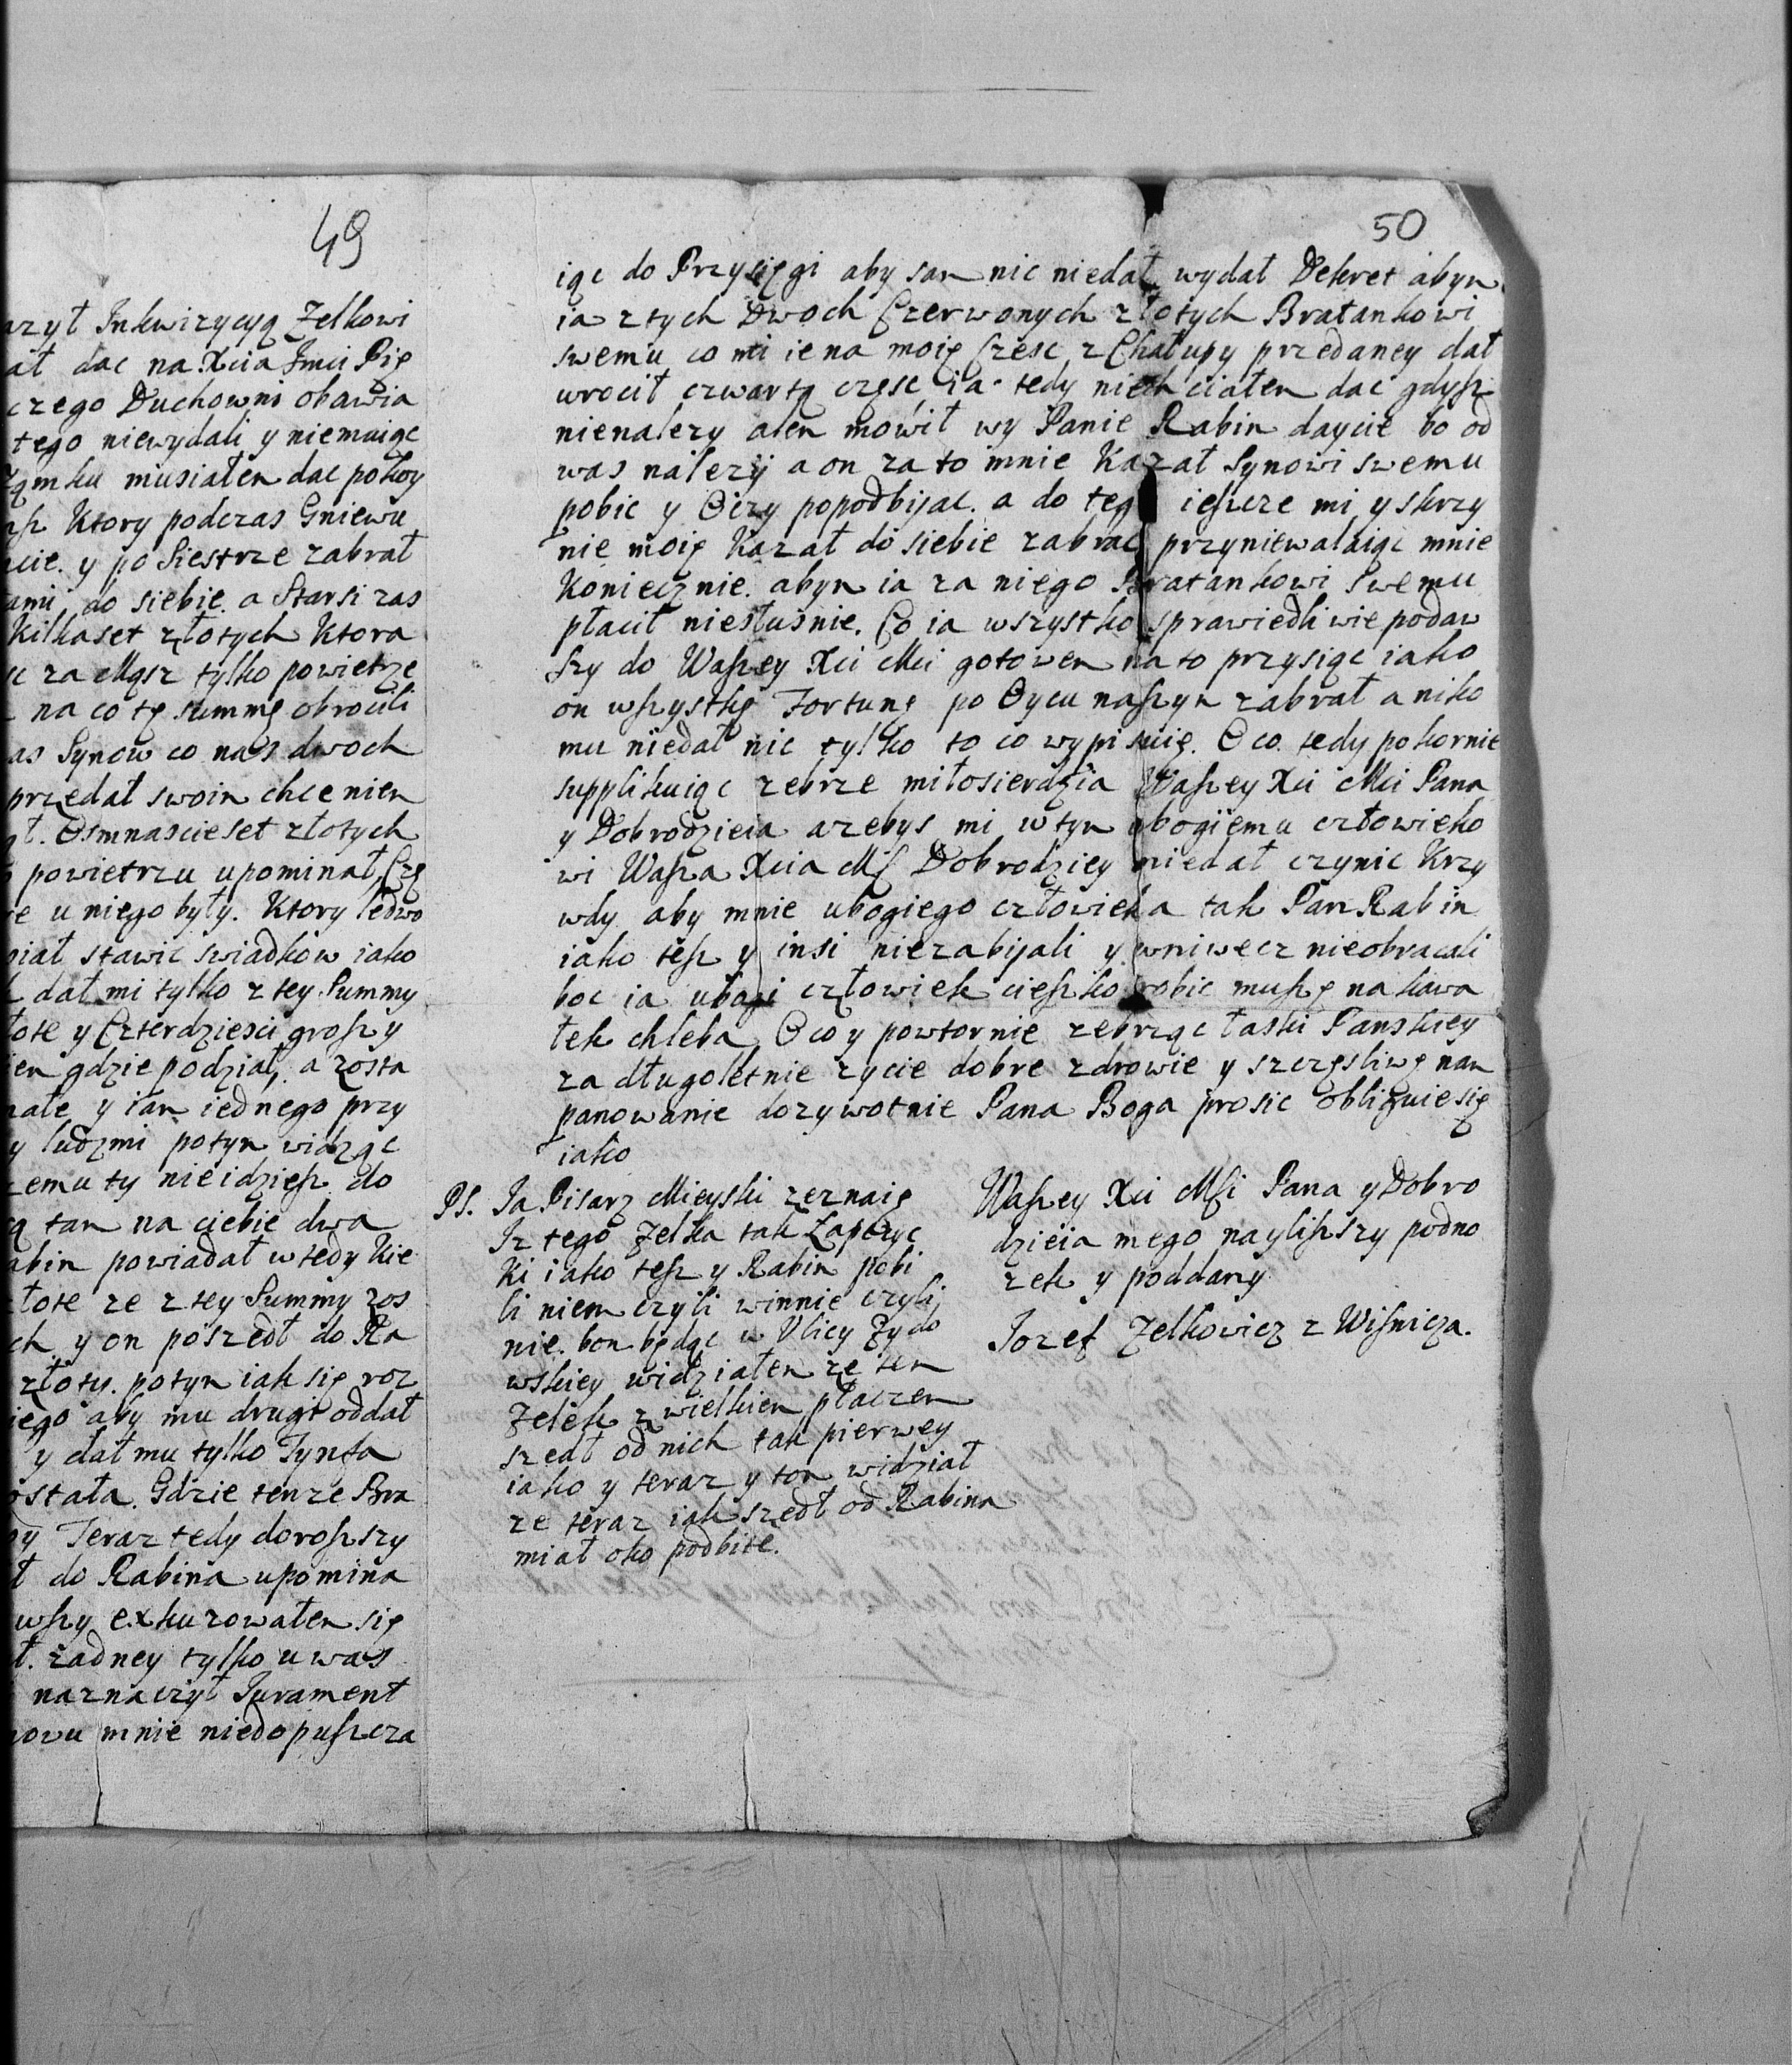 49
arzył Inkwizycyą Zelkowi
ał dac na Xcia Imci Pię
czego Duchowni obawia
tego niewydali y niemaiąc
Ząmku musiałem dac pokoy
Ktory podczas Gniewu
cie. y po Siestrze zabrał
ami do siebie. a Starsi zas
Kilkaset złotych Ktora
sc za Mąsz tylko powietrze
na co tę summę obrocili
as Synow co nas dwoch
przedał swoim chceniem
ął. Osmnascieset złotych
powietrzu upominał Czę
ie u niego były. Ktory ledwo
miał stawic swiadkow iako
dał mi tylko z tey Summy
łote y Czterdziesci groszy
iem gdzie podział, a zosta
nałe y iam iednego przy
y ludzmi potym widząc
zemu ty nieidziesz do
ą tam na ciebie dwa
abin powiadał wtedy Kie
złote ze z tey Summy zos
ch y on poszedł do Ra
złoty. potym iak się roz
iego aby mu drugi oddał
y dał mu tylko Tynfa
ostała. Gdzie tenze Bra
by Teraz tedy doroszszy
ł do Rabina upomina
wszy exkuzowałem się
ł. zadney tylko u was
naznaczył Iurament
nowu mnie niedopuszcza
50
iąc do Przysięgi aby sam nic niedał wydał Dekret abym
ia z tych Dwoch Czerwonych złotych Bratankowi
swemu co mi ie na moię Częsc z Chałupy przedaney dał
wrocił czwartą częsc ia tedy niechciałem dac gdysz
nienalezy alem mowił wy Panie Rabin daycie bo od
was nalezy a on za to mnie Kazał Synowi swemu
pobic y Oczy popodbijac. a do teg ieszcze mi y skrzy
nie moię Kazał do siebie zabrac przyniewalaiąc mnie
Koniecznie abym ia za niego Bratankowi swemu
płacił niesłusnie. Co ia wszystko sprawiedliwie podaw
szy do Waszey Xci Mci gotowem na to przysiąc iako
on wszystkę Fortunę po Oycu naszym zabrał a niko
mu niedał nic tylko to co wypisuię. O co tedy pokornie
supplikuiąc zebrze miłosierdzia Waszey Xci Mci Pana
y Dobrodzieia azebys mi w tym ubogiemu człowieko
wi Wasza Xcia Mć Dobrodziey niedał czynic Krzy
wdy aby mnie ubogiego człowieka tak Pan Rabin
iako tesz y insi niezabijali y wniwecz nieobracali
boc ia ubogi człowiek cieszko robic muszę na kawa
łek chleba O co y powtornie zebrząc łaski Panskiey
za długoletnie zycie dobre zdrowie y szczęsliwe nam
panowanie dozywotnie Pana Boga prosic obliguie się
iako
Waszey Xci Mći Pana y Dobro
dzieia mego naylisszy podno
zek y poddany
Iozef Zelkowicz z Wisnicza.
PS. Ia Pisarz Mieyski zeznaię
Iz tego Zelka tak Łapczyc
ki iako tesz y Rabin pobi
li niem czyli winnie czyli
nie. bom będąc w Ulicy Zydo
wskiey widziałem ze ten
Zelek z wielkiem płaczem
szedł od nich tak pierwey
iako y teraz y tom widział
ze teraz iak szedł od Rabina
miał oko podbite.